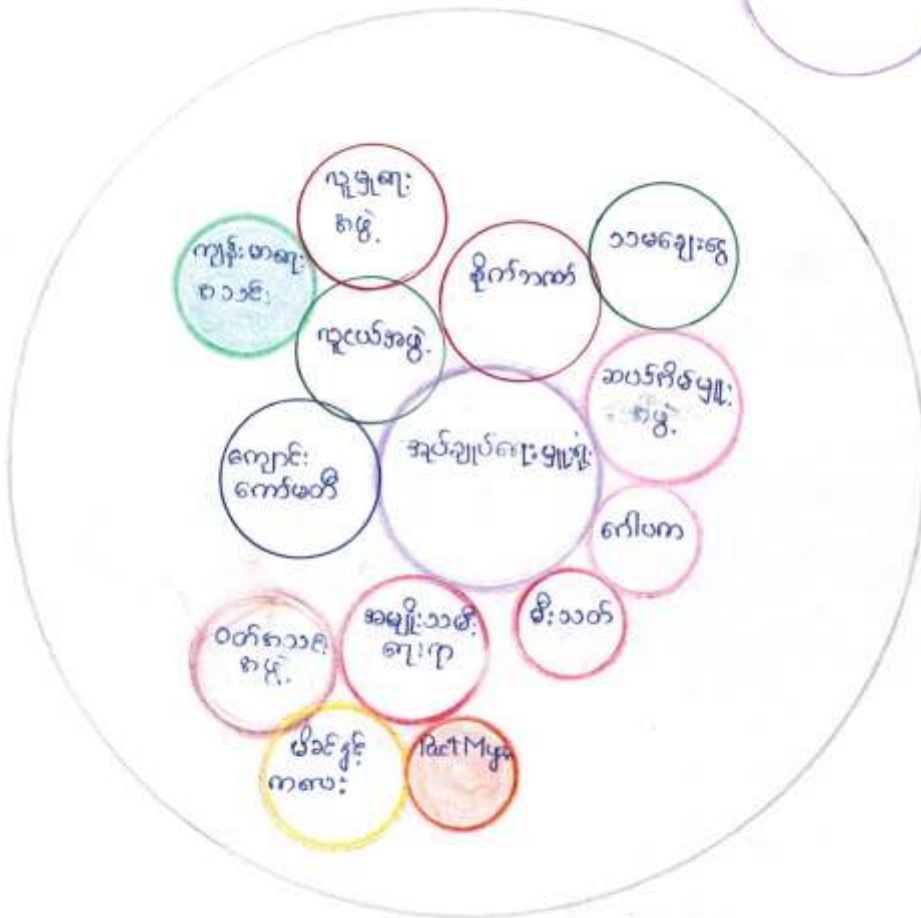 လူမှုရေး
အဖွဲ့
ကျန်းမာရေး
အသင်း
လူငယ်အဖွဲ့
စိုက်ဘဏ်
သမချေးငွေ
ဆယ်အိမ်မှူး
အဖွဲ့
အုပ်ချုပ်ရေးမှူးရုံး
ကျောင်း
ကော်မတီ
ဂေါပက
မီးသတ်
အမျိုးသမီး
ရေးရာ
ဝတ်အသင်း
အဖွဲ့
မိခင်နှင့်
ကလေး
Pact Mya